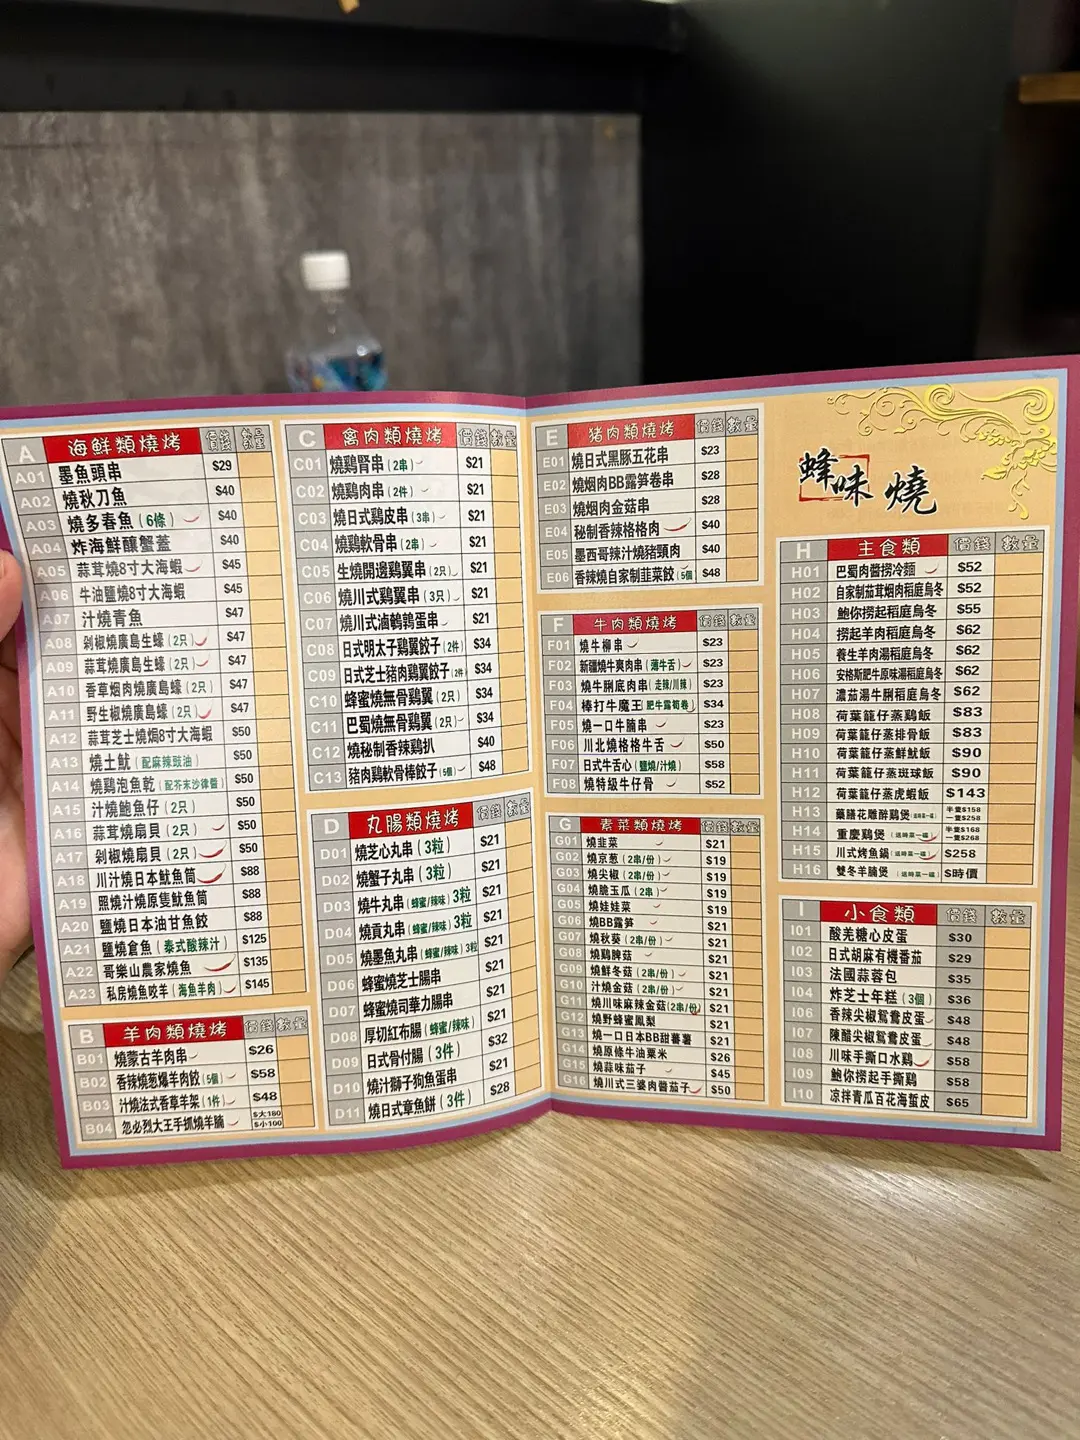 A 海鮮類燒烤 價錢 數量
A01 墨魚頭串 $29
A02 燒秋刀魚 $40
A03 燒多春魚(6條) $40
A04 炸海鮮釀蟹蓋 $40
A05 蒜茸燒8寸大海蝦 $45
A06 牛油鹽燒8寸大海蝦 $45
A07 汁燒青魚 $47
A08 剁椒燒廣島生蠔(2只) $47
A09 蒜茸燒廣島生蠔(2只) $47
A10 香草烟肉燒廣島蠔(2只) $47
A11 野生椒燒廣島蠔(2只) $47
A12 蒜茸芝士燒焗8寸大海蝦 $50
A13 燒土魷(配麻辣豉油) $50
A14 燒鷄泡魚乾(配芥末沙律醬) $50
A15 汁燒鮑魚仔(2只) $50
A16 蒜茸燒扇貝(2只) $50
A17 剁椒燒扇貝(2只) $50
A18 川汁燒日本魷魚筒 $88
A19 照燒汁燒原隻魷魚筒 $88
A20 鹽燒日本油甘魚鮫 $88
A21 鹽燒倉魚(泰式酸辣汁) $125
A22 哥樂山農家燒魚 $135
A23 私房燒魚咬羊(海魚羊肉) $145
B 羊肉類燒烤 價錢 數量
B01 燒蒙古羊肉串 $26
B02 香辣燒葱爆羊肉餃(5個) $58
B03 汁燒法式香草羊架(1件) $48
B04 忽必烈大王手抓燒羊腩 $大180 $小100
C 禽肉類燒烤 價錢 數量
C01 燒鷄腎串(2串) $21
C02 燒鷄肉串(2件) $21
C03 燒日式鷄皮串(3串) $21
C04 燒鷄軟骨串(2串) $21
C05 生燒開邊鷄翼串(2只) $21
C06 燒川式鷄翼串(3只) $21
C07 燒川式滷鵪鶉蛋串 $21
C08 日式明太子鷄翼餃子(2件) $34
C09 日式芝士豬肉鷄翼餃子(2件) $34
C10 蜂蜜燒無骨鷄翼(2只) $34
C11 巴蜀燒無骨鷄翼(2只) $34
C12 燒秘制香辣鷄扒 $40
C13 豬肉鷄軟骨棒餃子(5個) $48
D 丸腸類燒烤 價錢 數量
D01 燒芝心丸串(3粒) $21
D02 燒蟹子丸串(3粒) $21
D03 燒牛丸串(蜂蜜/辣味)3粒 $21
D04 燒貢丸串(蜂蜜/辣味)3粒 $21
D05 燒墨魚丸串(蜂蜜/辣味)3粒 $21
D06 蜂蜜燒芝士腸串 $21
D07 蜂蜜燒司華力腸串 $21
D08 厚切紅布腸(蜂蜜/辣味) $21
D09 日式骨付腸(3件) $32
D10 燒汁獅子狗魚蛋串 $21
D11 燒日式章魚餅(3件) $28
E 豬肉類燒烤 價錢 數量
E01 燒日式黑豚五花串 $23
E02 燒烟肉BB露笋卷串 $28
E03 燒烟肉金菇串 $28
E04 秘制香辣格格肉 $40
E05 墨西哥辣汁燒豬頸肉 $40
E06 香辣燒自家制韮菜餃(5個) $48
F 牛肉類燒烤 價錢 數量
F01 燒牛柳串 $23
F02 新疆燒牛爽肉串(薄牛舌) $23
F03 燒牛脷底肉串(走辣/川辣) $23
F04 棒打牛魔王(肥牛露荀卷) $34
F05 燒一口牛腩串 $23
F06 川北燒格格牛舌 $50
F07 日式牛舌心(鹽燒/汁燒) $58
F08 燒特級牛仔骨 $52
G 素菜類燒烤 價錢 數量
G01 燒韭菜 $21
G02 燒京葱(2串/份) $19
G03 燒尖椒(2串/份) $19
G04 燒脆玉瓜(2串) $19
G05 燒娃娃菜 $19
G06 燒BB露笋 $21
G07 燒秋葵(2串/份) $21
G08 燒鷄脾菇 $21
G09 燒鮮冬菇(2串/份) $21
G10 汁燒金菇(2串/份) $21
G11 燒川味麻辣金菇(2串/份) $21
G12 燒野蜂蜜鳳梨 $21
G13 燒一口日本BB甜蕃薯 $21
G14 燒原條牛油粟米 $26
G15 燒蒜味茄子 $45
G16 燒川式三婆肉醬茄子 $50
蜂味燒
H 主食類 價錢 數量
H01 巴蜀肉醬撈冷麵 $52
H02 自家制茄茸烟肉稻庭烏冬 $52
H03 鮑你撈起稻庭烏冬 $55
H04 撈起羊肉稻庭烏冬 $62
H05 養生羊肉湯稻庭烏冬 $62
H06 安格斯肥牛原味湯稻庭烏冬 $62
H07 濃茄湯牛脷稻庭烏冬 $62
H08 荷葉籠仔蒸鷄飯 $83
H09 荷葉籠仔蒸排骨飯 $83
H10 荷葉籠仔蒸鮮魷飯 $90
H11 荷葉籠仔蒸斑球飯 $90
H12 荷葉籠仔蒸虎蝦飯 $143
H13 藥膳花雕醉鷄煲(送時菜一碟) 半隻$158 一隻$258
H14 重慶鷄煲(送時菜一碟) 半隻$168 一隻$268
H15 川式烤魚鍋(送時菜一碟) $258
H16 雙冬羊腩煲(送時菜一碟) $時價
I 小食類 價錢 數量
I01 酸羌糖心皮蛋 $30
I02 日式胡麻有機番茄 $29
I03 法國蒜蓉包 $35
I04 炸芝士年糕(3個) $36
I06 香辣尖椒鴛鴦皮蛋 $48
I07 陳醋尖椒鴛鴦皮蛋 $48
I08 川味手撕口水鷄 $58
I09 鮑你撈起手撕鷄 $58
I10 凉拌青瓜百花海蜇皮 $65